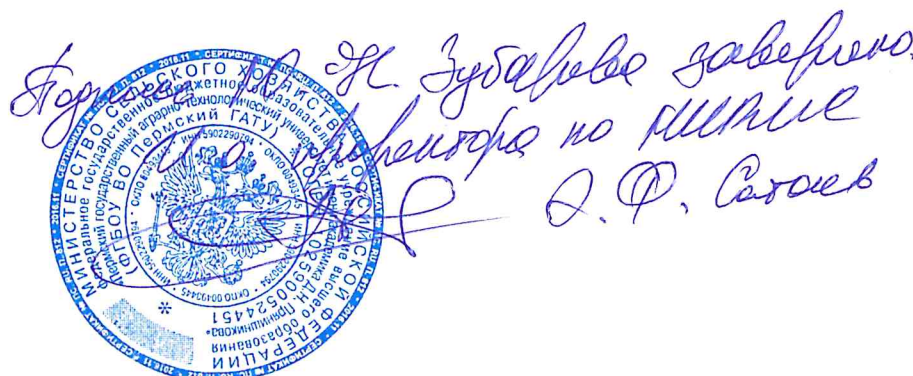 Подпись Ю. Н. Зубарева заверено.
И. о. проректора по
Э. Ф. Сатаев
МИНИСТЕРСТВО СЕЛЬСКОГО ХОЗЯЙСТВА РОССИЙСКОЙ ФЕДЕРАЦИИ
федеральное государственное бюджетное образовательное учреждение высшего образования
"Пермский государственный аграрно-технологический университет имени академика Д.Н. Прянишникова"
(ФГБОУ ВО Пермский ГАТУ)
1025900524451
ИНН 5902290794 * ОКПО 00493445